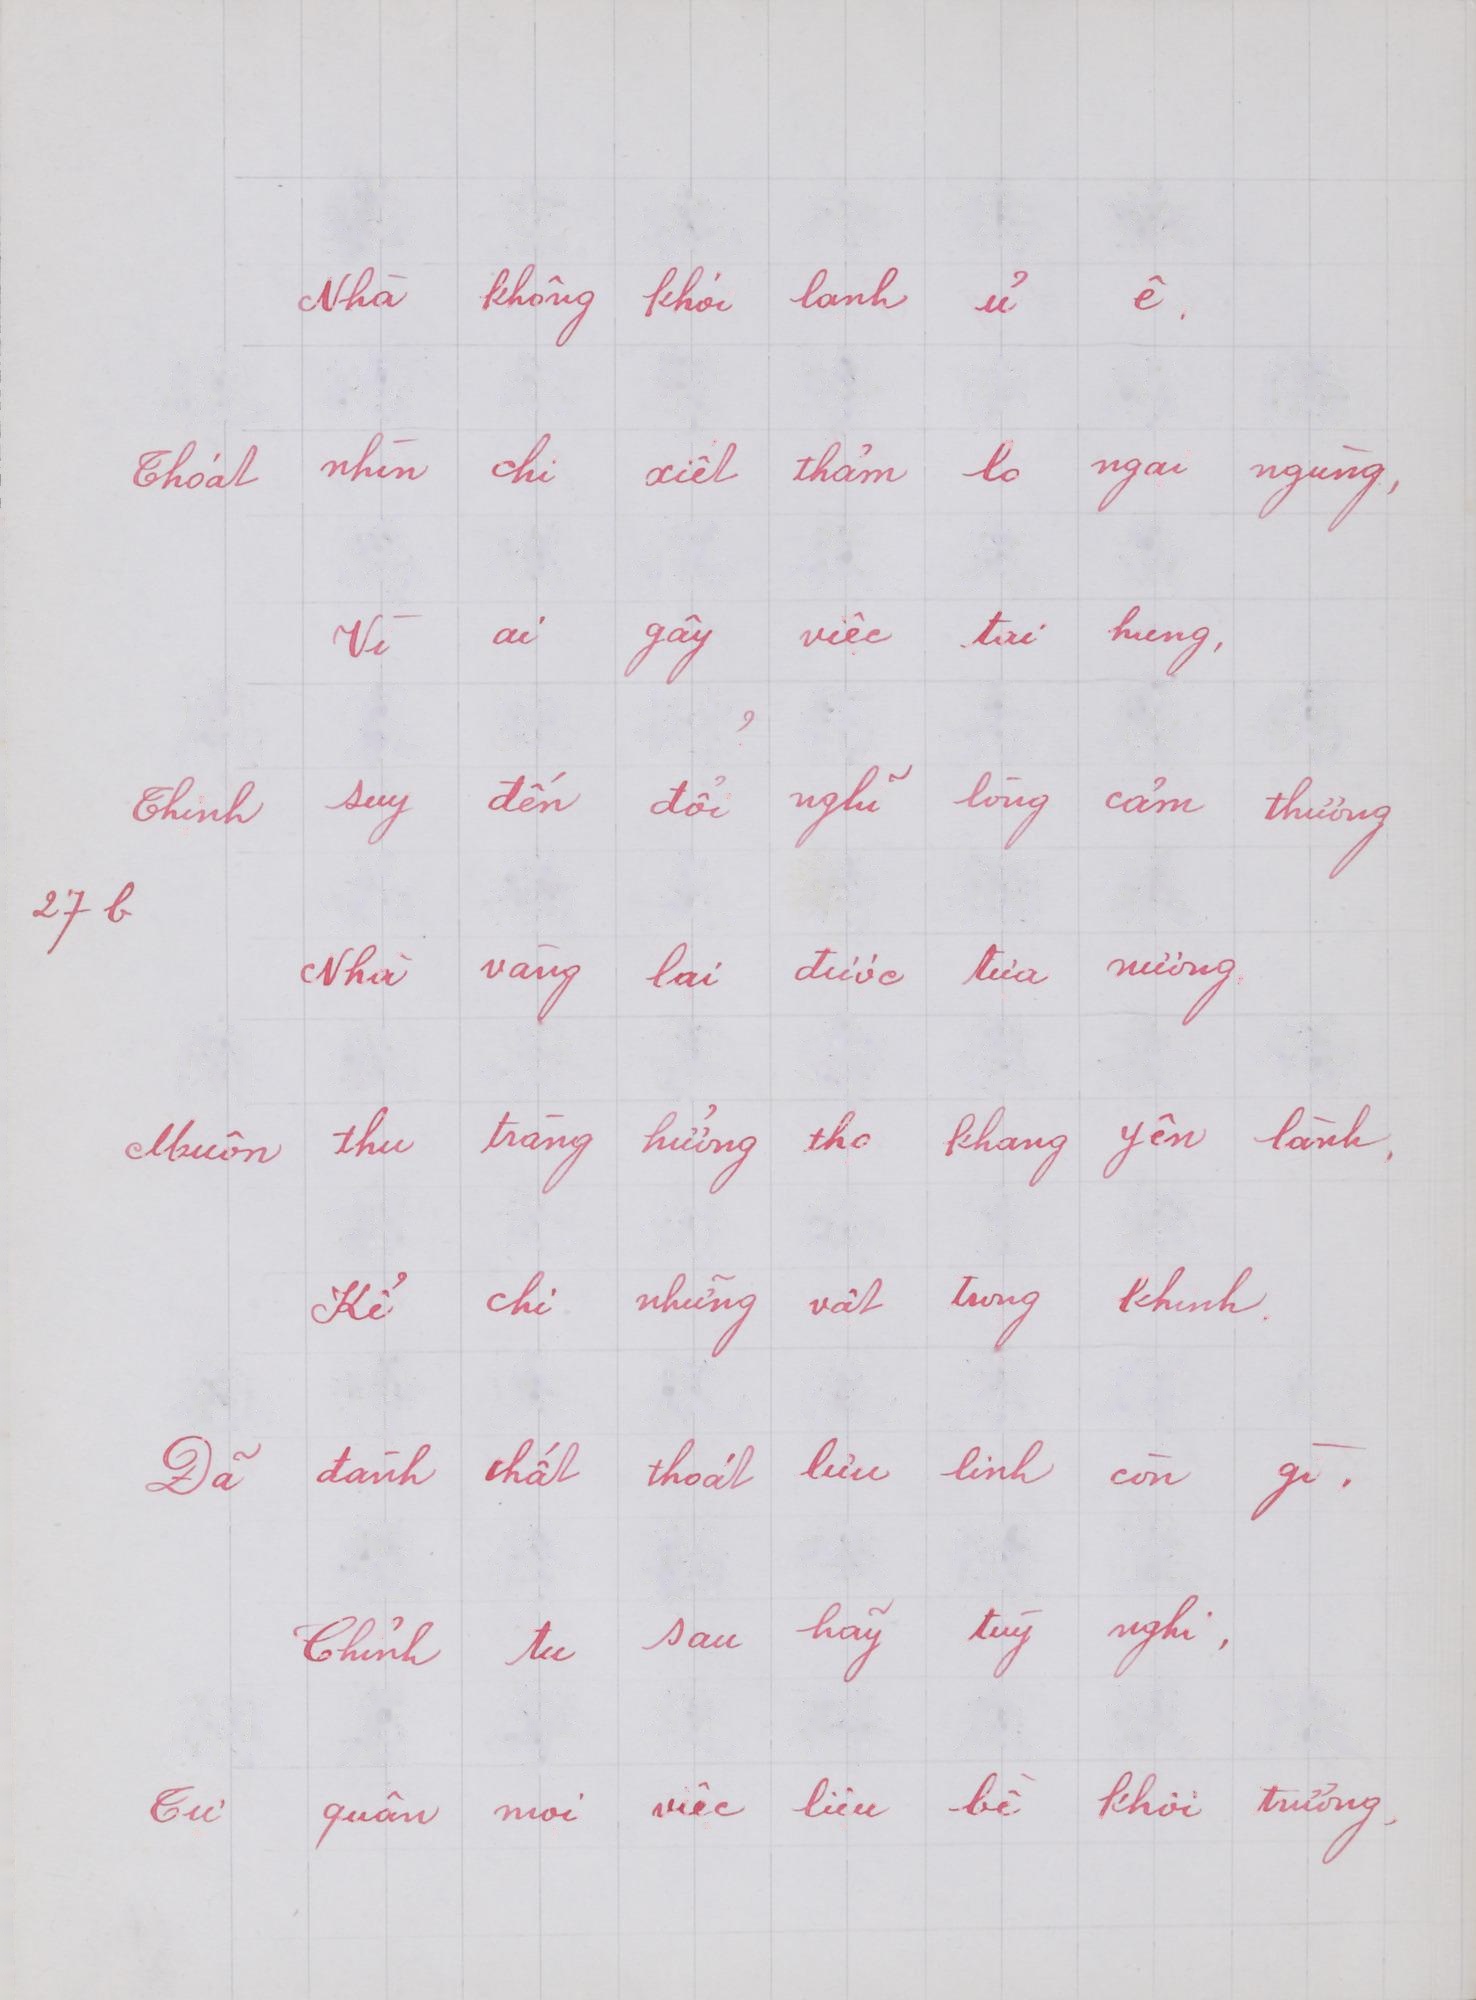 Nhà không khói lanh ủ ê.
Thoát nhìn chi xiêt thảm lo ngai ngùng,
Vì ai gây viêc tai hung,
Thinh suy đến đổi nghĩ lòng cảm thương
27 b
Nhà vàng lai đước tưa nương
Muôn thu tràng hưởng tho khang yên lành.
Kể chi những vât trong khinh.
Dã đành thất thoát lưu linh còn gì.
Chỉnh tu sau hãy tùy nghi,
Tư quân moi viêc liêu bề khôi trưởng.